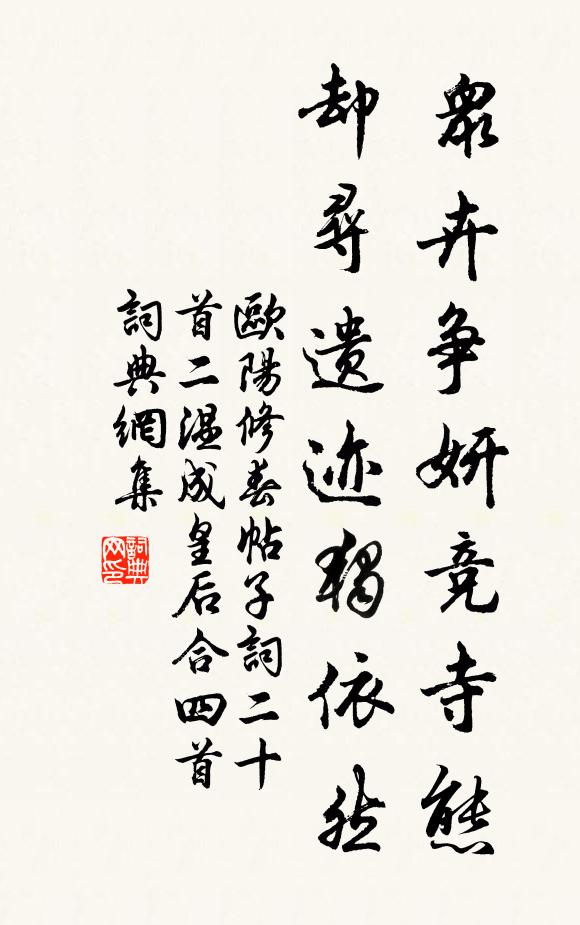 眾卉争妍竞寺態
却尋遺迹獨依然
歐陽修春帖子詞二十
首二温成皇后合四首
詞典網集
詞典网印